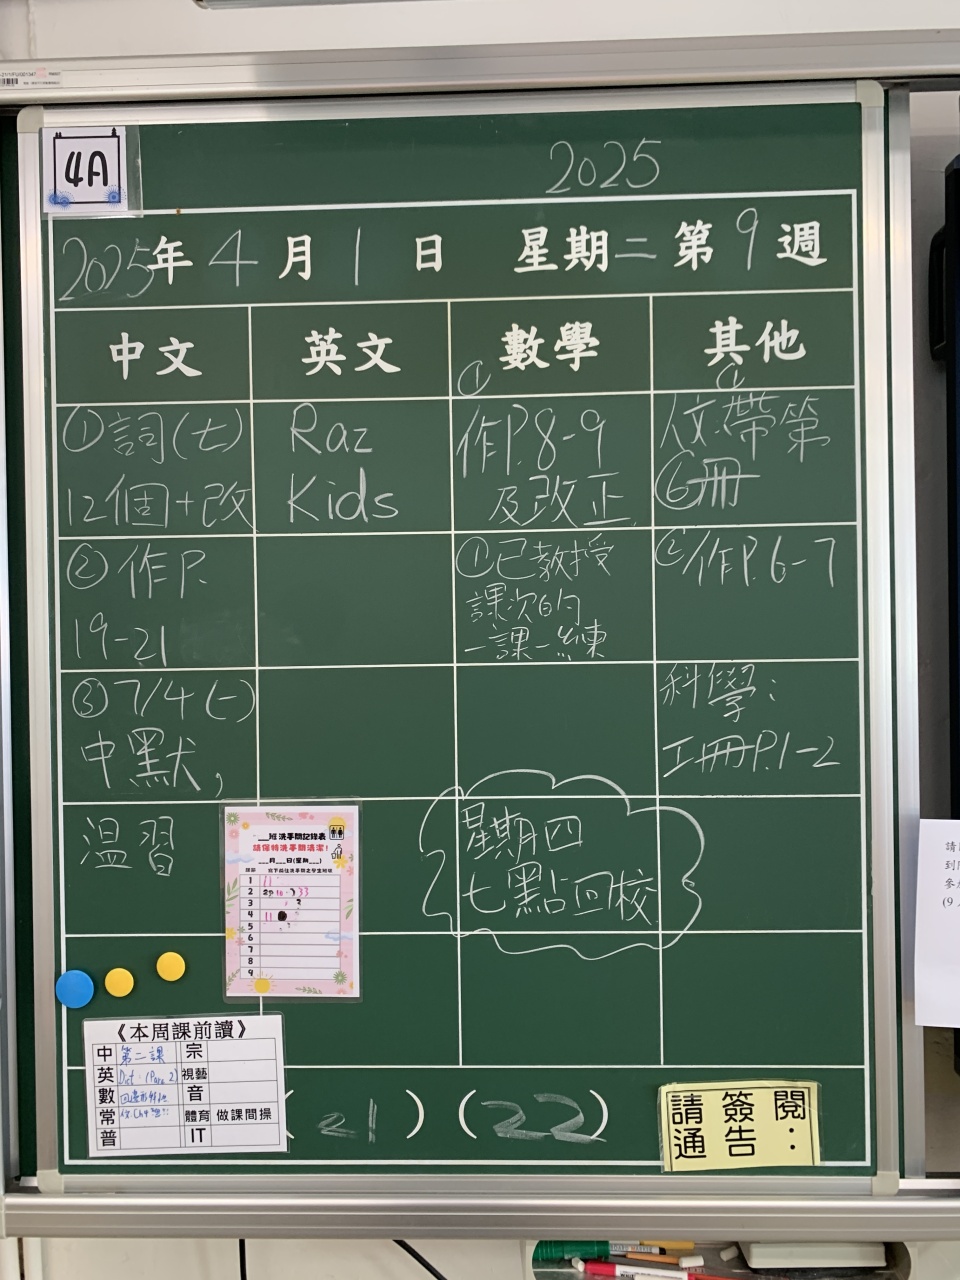 4A
2025
2025年4月1日 星期二 第9週
中文 英文 數學 其他
①詞(七)
12個+改
②作P.
19-21
③7/4(一)
中默,
温習
Raz
Kids
①
作P.8-9
及改正
①已教授
課次的
一課一練
①
人文:帶第
⑥冊
②作P.6-7
科學:
工冊P.1-2
星期四
七點回校
___班洗手間記錄表
請保持洗手間清潔!
___月___日(星期___)
1 11
2
3
4 11
5
6
7
8
9
《本周課前讀》
中 第二課 宗
英 Dict. (Para 2) 視藝
數 音
常 體育 做課間操
普 IT
(21) (22)
請簽閱
通告: